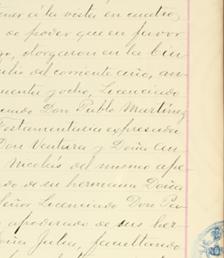 tener á la vista en cuatro,
se poder que en favor
go, otorgaron en la ciu
del corriente año, an
mente y ocho, Licenciado
ciado Don Pablo Martínez
Testamentaria expresada
Don Ventura y Doña An
Nicolás del mismo ape
do de su hermana Doña
señor Licenciado Don Pa
apoderado de sus her
Julia, facultando